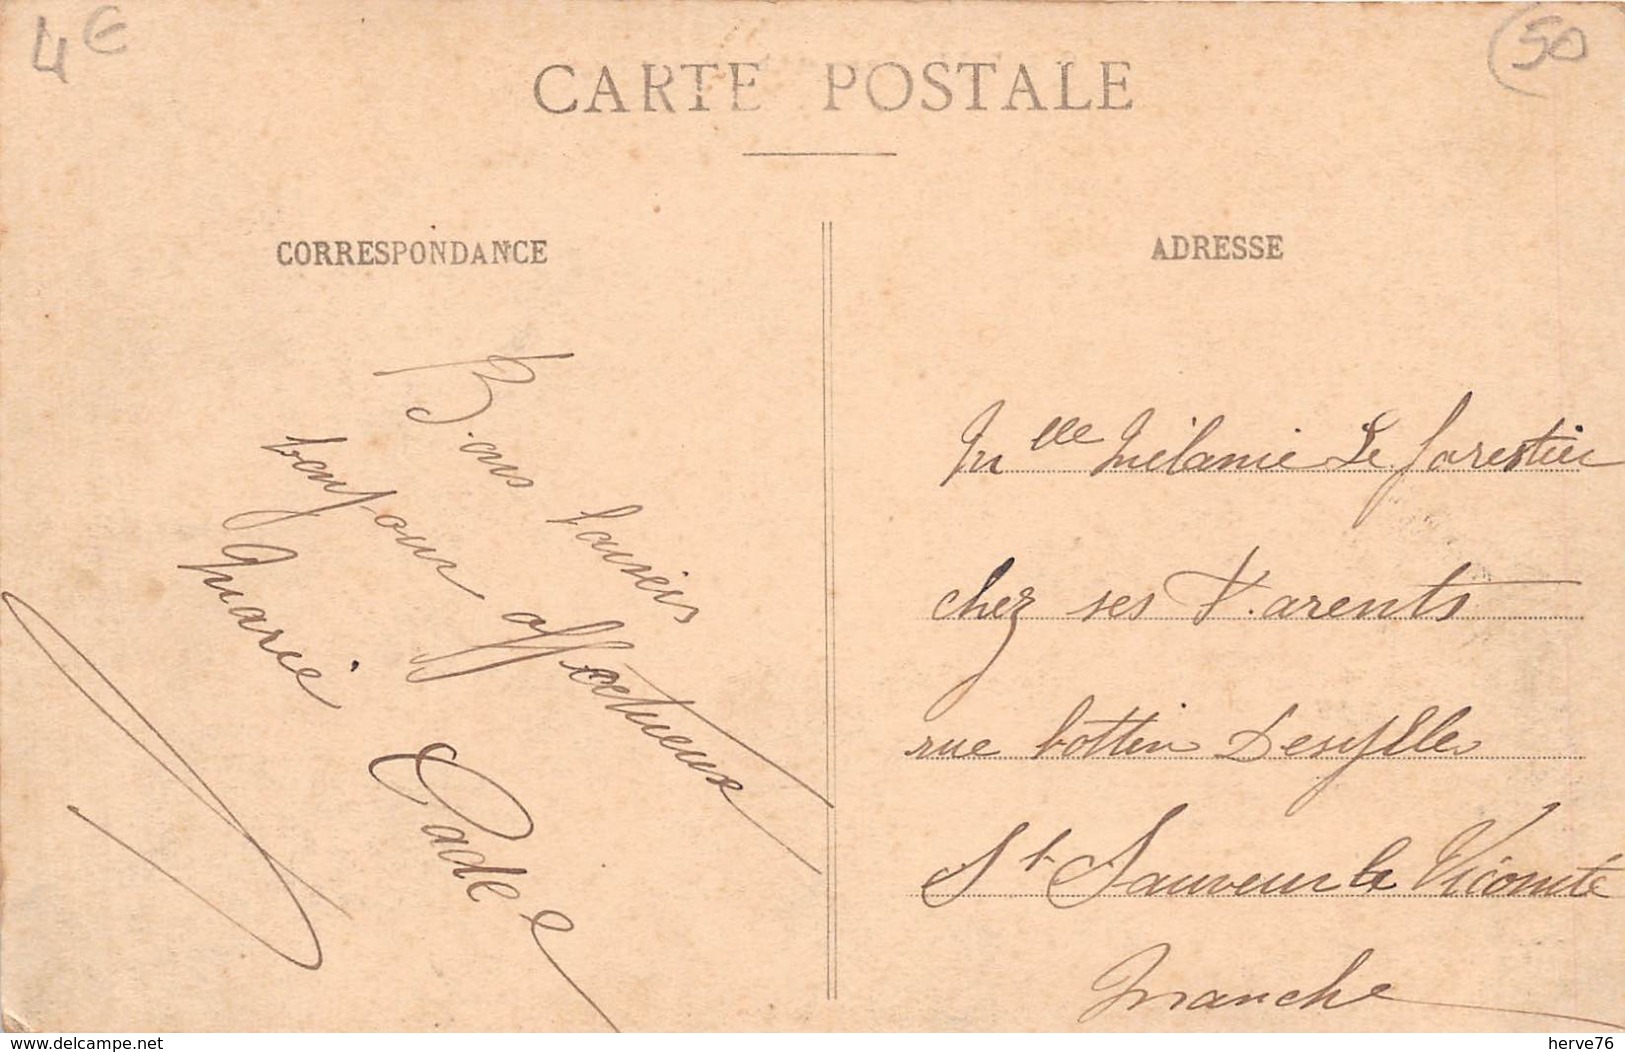 4€
50
CARTE POSTALE
CORRESPONDANCE
ADRESSE
Bons baiseis
bonjour affectueux
Marie
Mlle Mélanie Le forestier
chez ses Parents
rue bottin Desylles
St Sauveur le Vicomte
Manche
www.delcampe.net
herve76